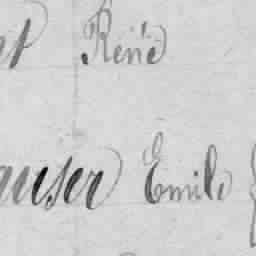 et René
auser Emile